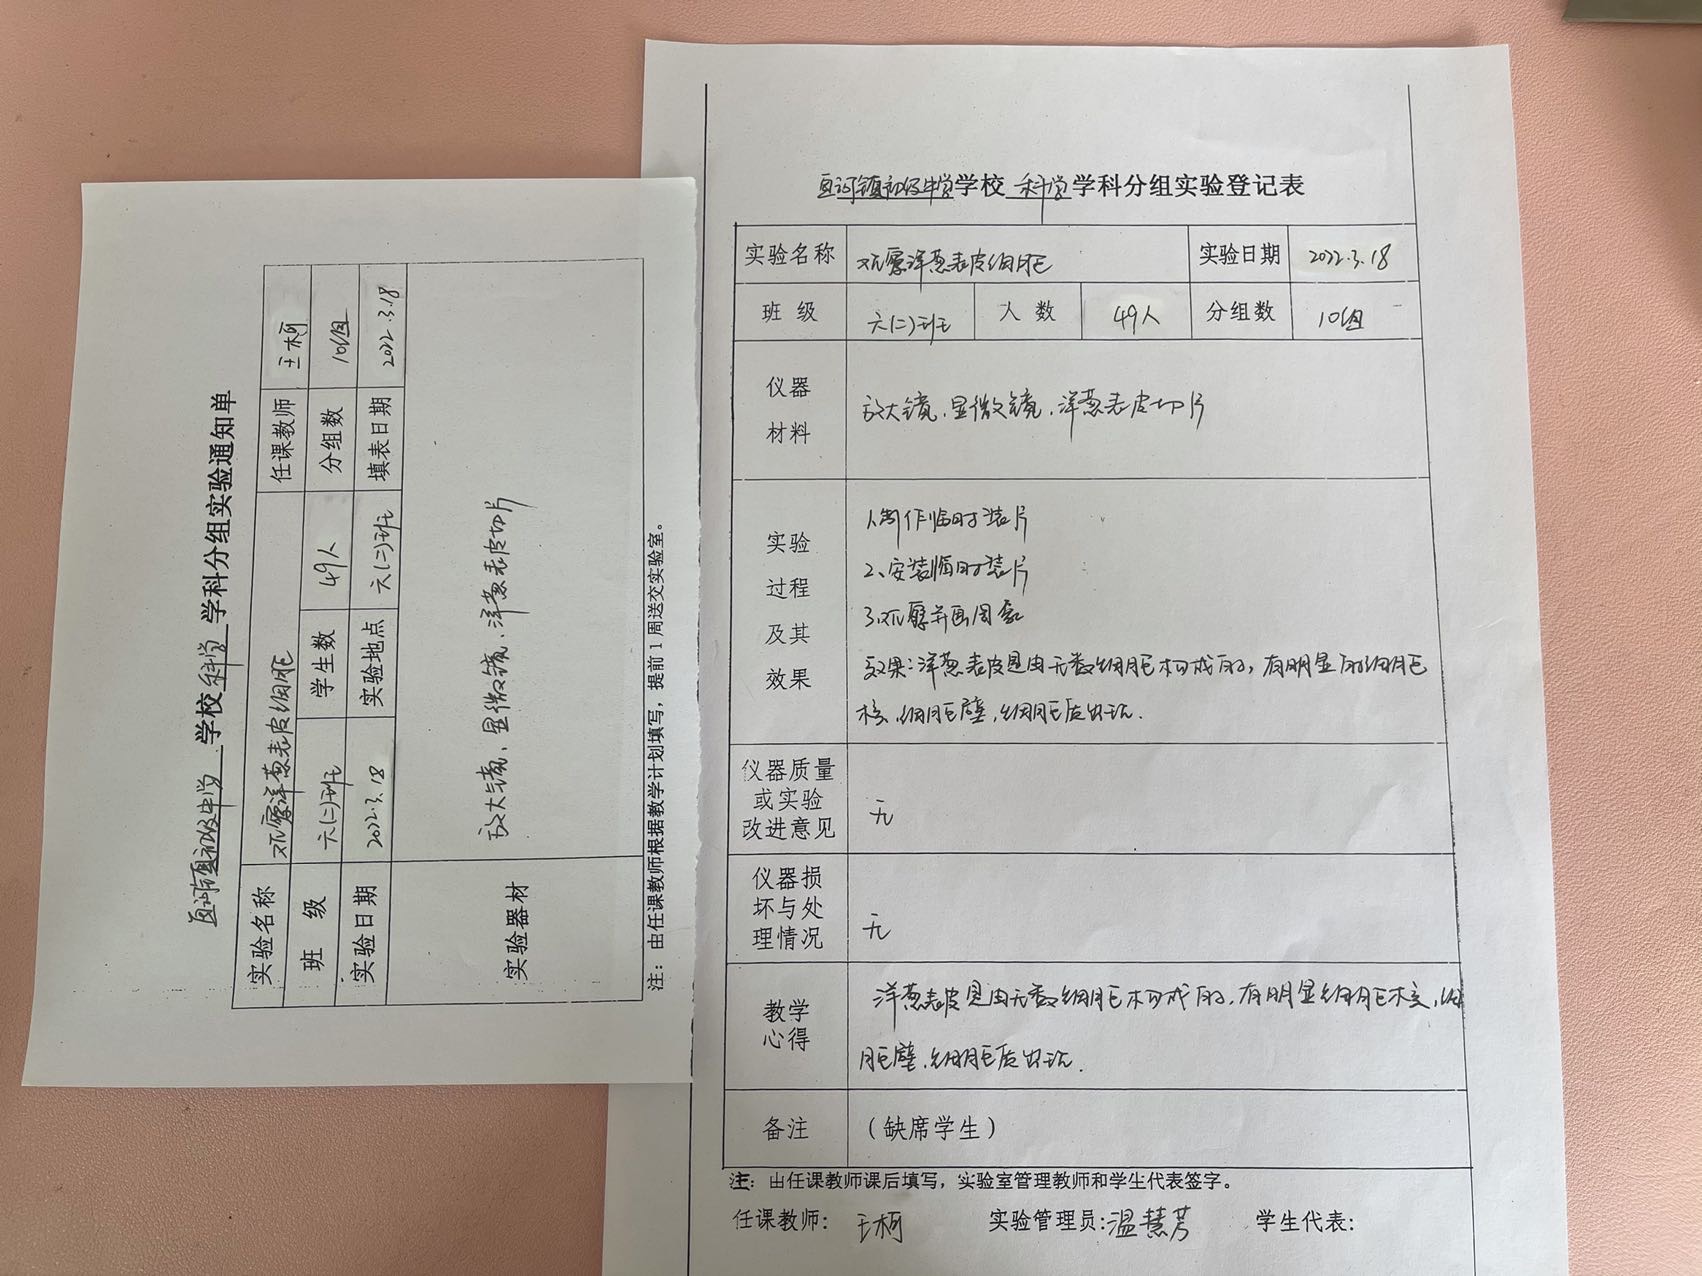 镇初级中学学校科学学科分组实验通知单
实验名称 观察洋葱表皮细胞 任课教师 王柯
班级 六(二)班 学生数 49人 分组数 10组
实验日期 2022.3.18 实验地点 六(二)班 填表日期 2022.3.18
实验器材 放大镜、显微镜、洋葱表皮切片
注：由任课教师根据教学计划填写，提前1周送交实验室。
镇初级中学学校科学学科分组实验登记表
实验名称 观察洋葱表皮细胞 实验日期 2022.3.18
班级 六(二)班 人数 49人 分组数 10组
仪器
材料
放大镜、显微镜、洋葱表皮切片
实验
过程
及其
效果
1、制作临时装片
2、安装临时装片
3、观察并画图象
效果：洋葱表皮是由无数细胞构成的，有明显的细胞
核、细胞壁，细胞质出现.
仪器质量
或实验
改进意见
无
仪器损
坏与处
理情况
无
教学
心得
洋葱表皮是由无数细胞构成的，有明显细胞核，细
胞壁、细胞质出现.
备注 （缺席学生）
注：由任课教师课后填写，实验室管理教师和学生代表签字。
任课教师：王柯 实验管理员：温慧芳 学生代表：